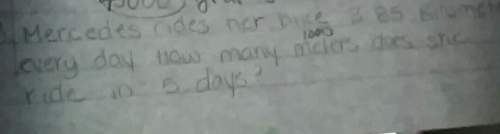 Mercedes rides her bike 3.85 kilomet
1000
every day How many meters does she
ride in 5 days?